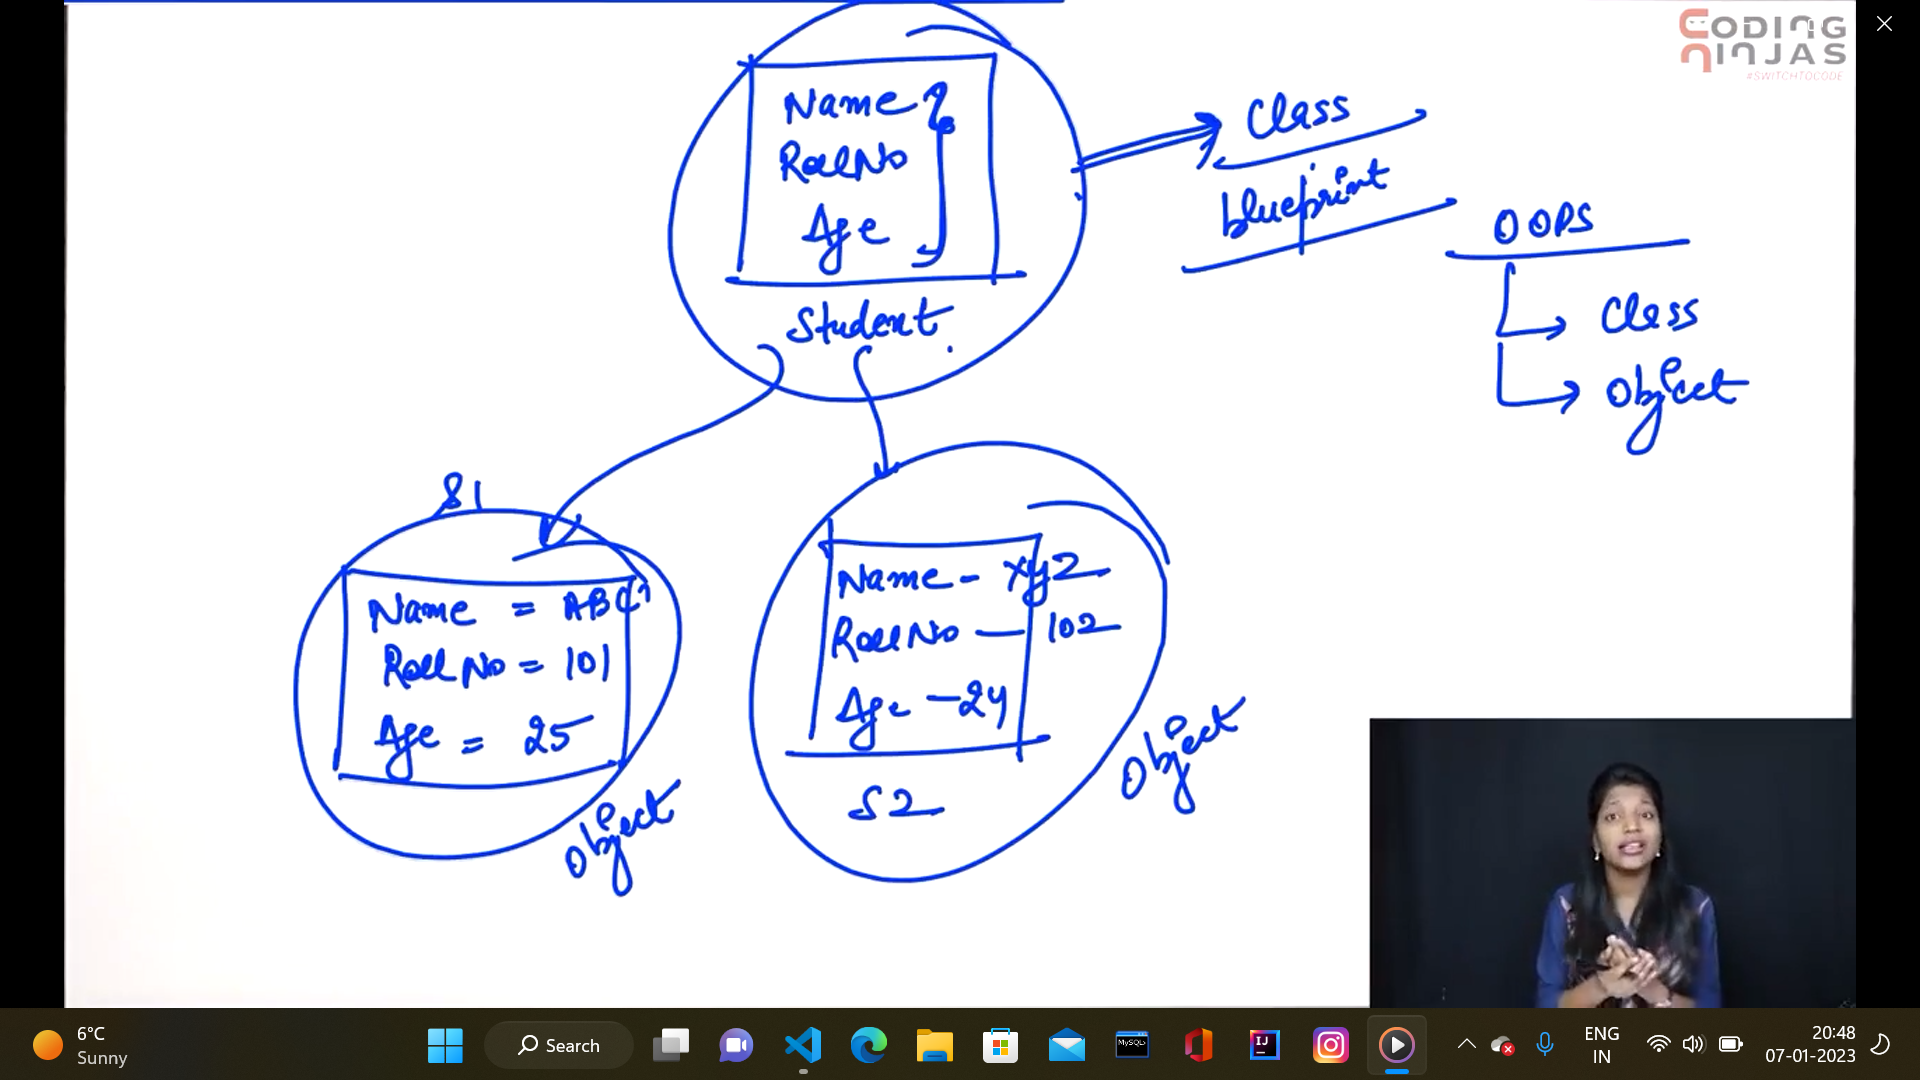 CODING
NINJAS
#SWITCHTOCODE
Name
RollNo
Age
Student
Class
blueprint
OOPS
Class
Object
S1
Name = ABC
Roll No = 101
Age = 25
Object
Name - xyz
RollNo — 102
Age - 24
S2
Object
6°C
Sunny
Search
MySQL>
IJ
ENG
IN
20:48
07-01-2023